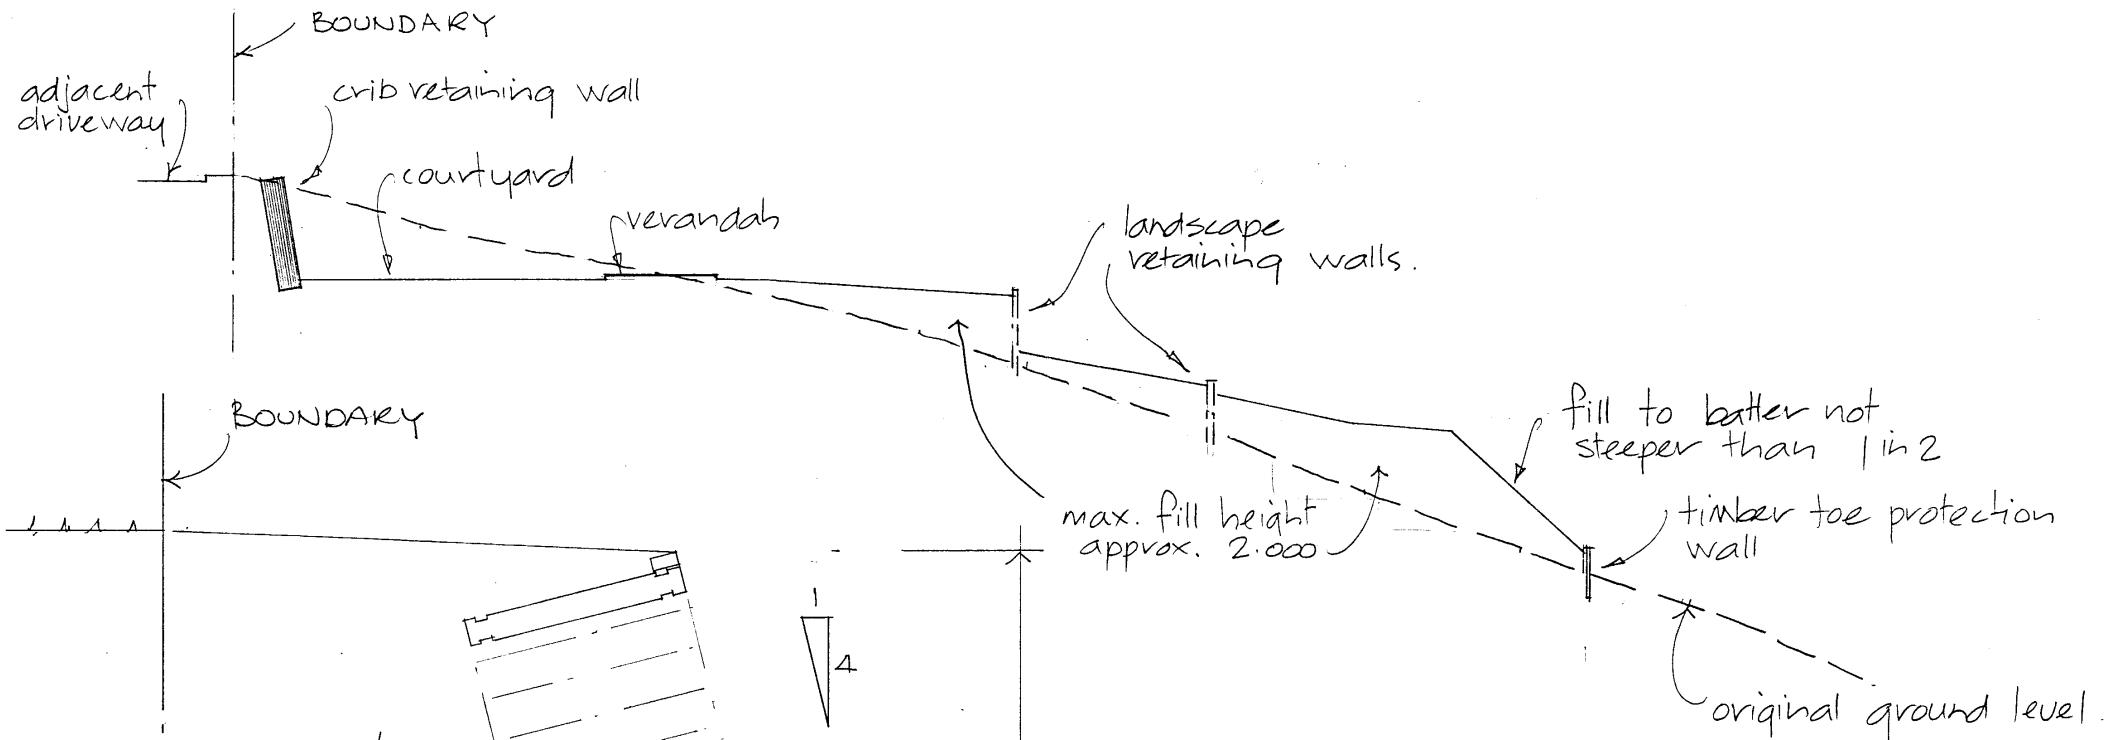 BOUNDARY
adjacent
driveway
crib retaining wall
courtyard
verandah
landscape
retaining walls.
BOUNDARY
fill to batter not
steeper than 1 in 2
max. fill height
approx. 2.000
timber toe protection
wall
1
4
original ground level.